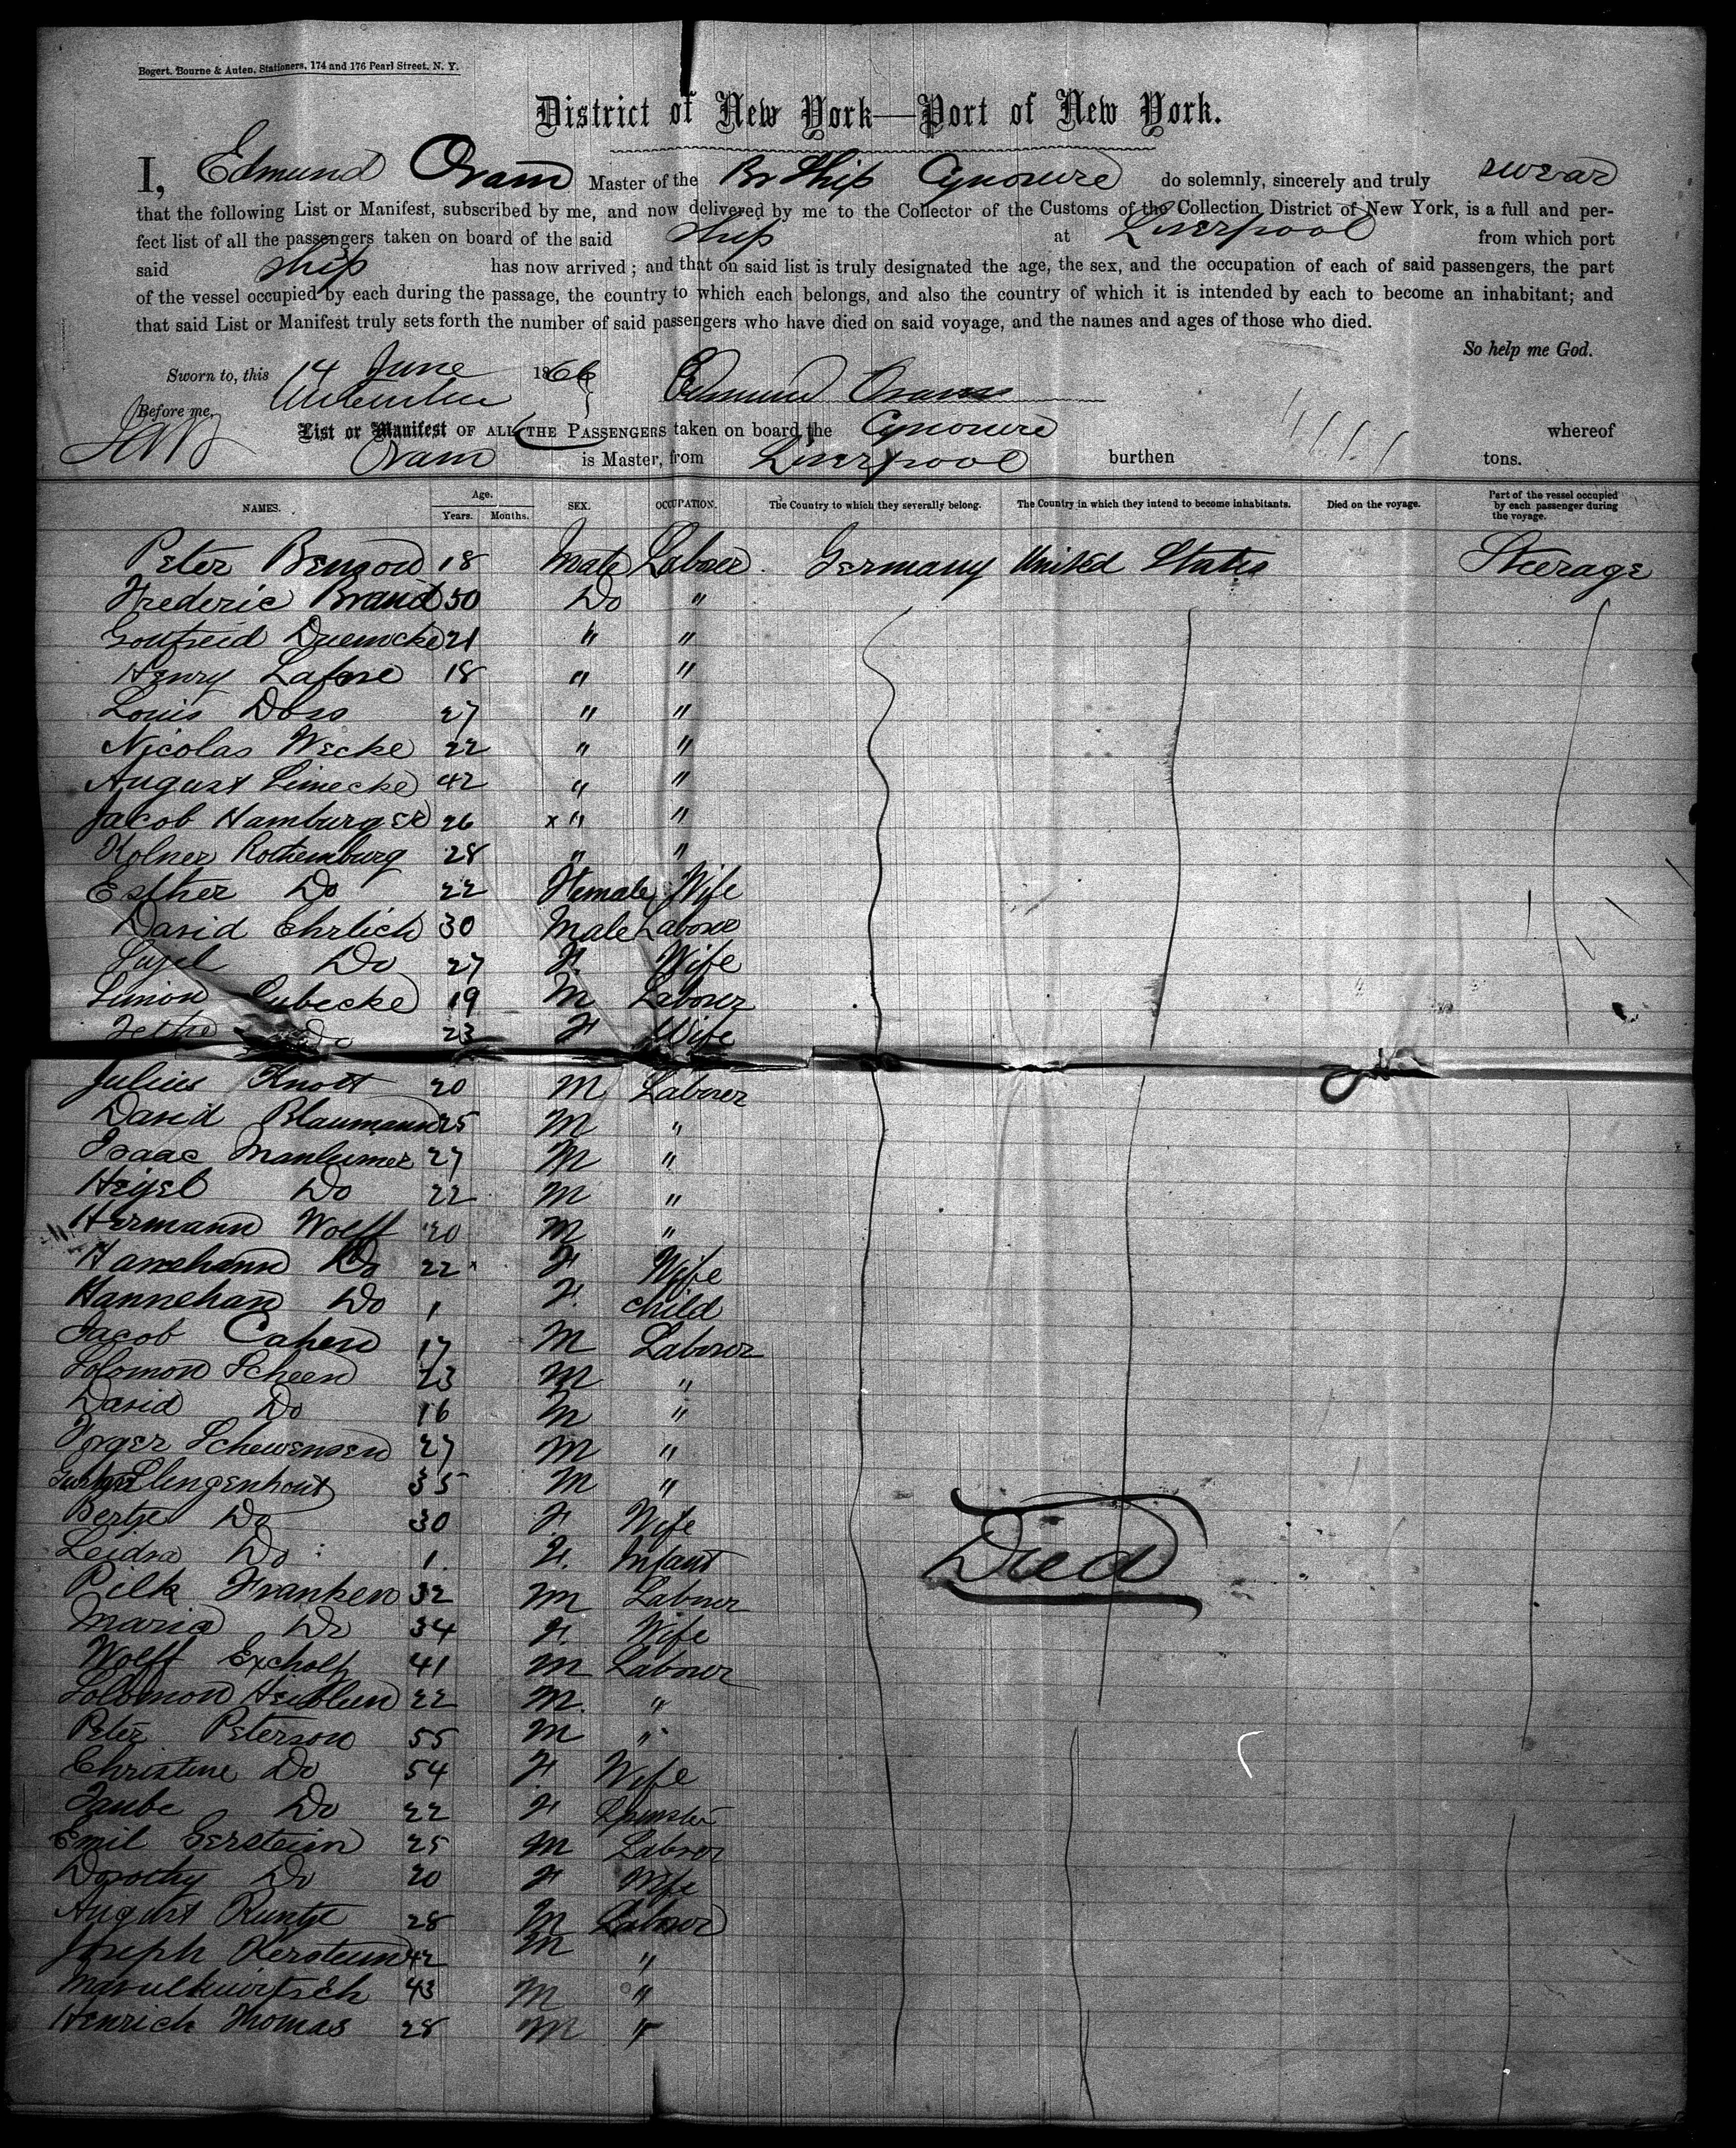 Bogert, Bourne & Auten, Stationers, 174 and 176 Pearl Street, N. Y.
District of New York—Port of New York.
I, Edmund Oram Master of the Br Ship Cynosure do solemnly, sincerely and truly swear
that the following List or Manifest, subscribed by me, and now delivered by me to the Collector of the Customs of the Collection District of New York, is a full and per-
fect list of all the passengers taken on board of the said ship at Liverpool from which port
said ship has now arrived; and that on said list is truly designated the age, the sex, and the occupation of each of said passengers, the part
of the vessel occupied by each during the passage, the country to which each belongs, and also the country of which it is intended by each to become an inhabitant; and
that said List or Manifest truly sets forth the number of said passengers who have died on said voyage, and the names and ages of those who died.
So help me God.
Sworn to, this 14 June 1866 Edmund Oram
Before me,
List or Manifest OF ALL THE PASSENGERS taken on board the Cynosure whereof
Oram is Master, from Liverpool burthen tons.
NAMES. Age. Years. Months. SEX. OCCUPATION. The Country to which they severally belong. The Country in which they intend to become inhabitants. Died on the voyage. Part of the vessel occupied by each passenger during the voyage.
Peter 18 Male Laborer Germany United States Steerage
Frederic Brand 50 Do "
21 " "
Henry 18 " "
Louis 27 " "
Nicolas Wecke 22 " "
August 42 " "
Jacob Hamburger 26 x " "
Kolner Rothemburg 28 " "
Esther Do 22 Female Wife
David Ehrlich 30 Male Laborer
Do 27 F. Wife
Simon Lubecke 19 M Laborer
Do 23 F Wife
Julius Knott 20 M Laborer
David Blaumann 25 M "
Isaac 27 M "
Do 22 M "
Hermann Wolff 20 M "
Do 22 F Wife
Hannehan Do 1 F. child
Jacob Cahen 17 M Laborer
Solomon Scheen 23 M "
David Do 16 M "
Schewensen 27 M "
35 M "
Bertje Do 30 F. Wife
Do 1. F. Infant Died
Franken 32 M Laborer
Maria Do 34 F. Wife
Wolff 41 M Laborer
Solomon 22 M. "
Peter Peterson 55 M "
Christine Do 54 F. Wife
Taube Do 22 F Spinster
Emil Gerstein 25 M Laborer
Dorothy Do 20 F Wife
August Runtje 28 M Laborer
Joseph 42 M "
43 M "
Henrich Thomas 28 M "